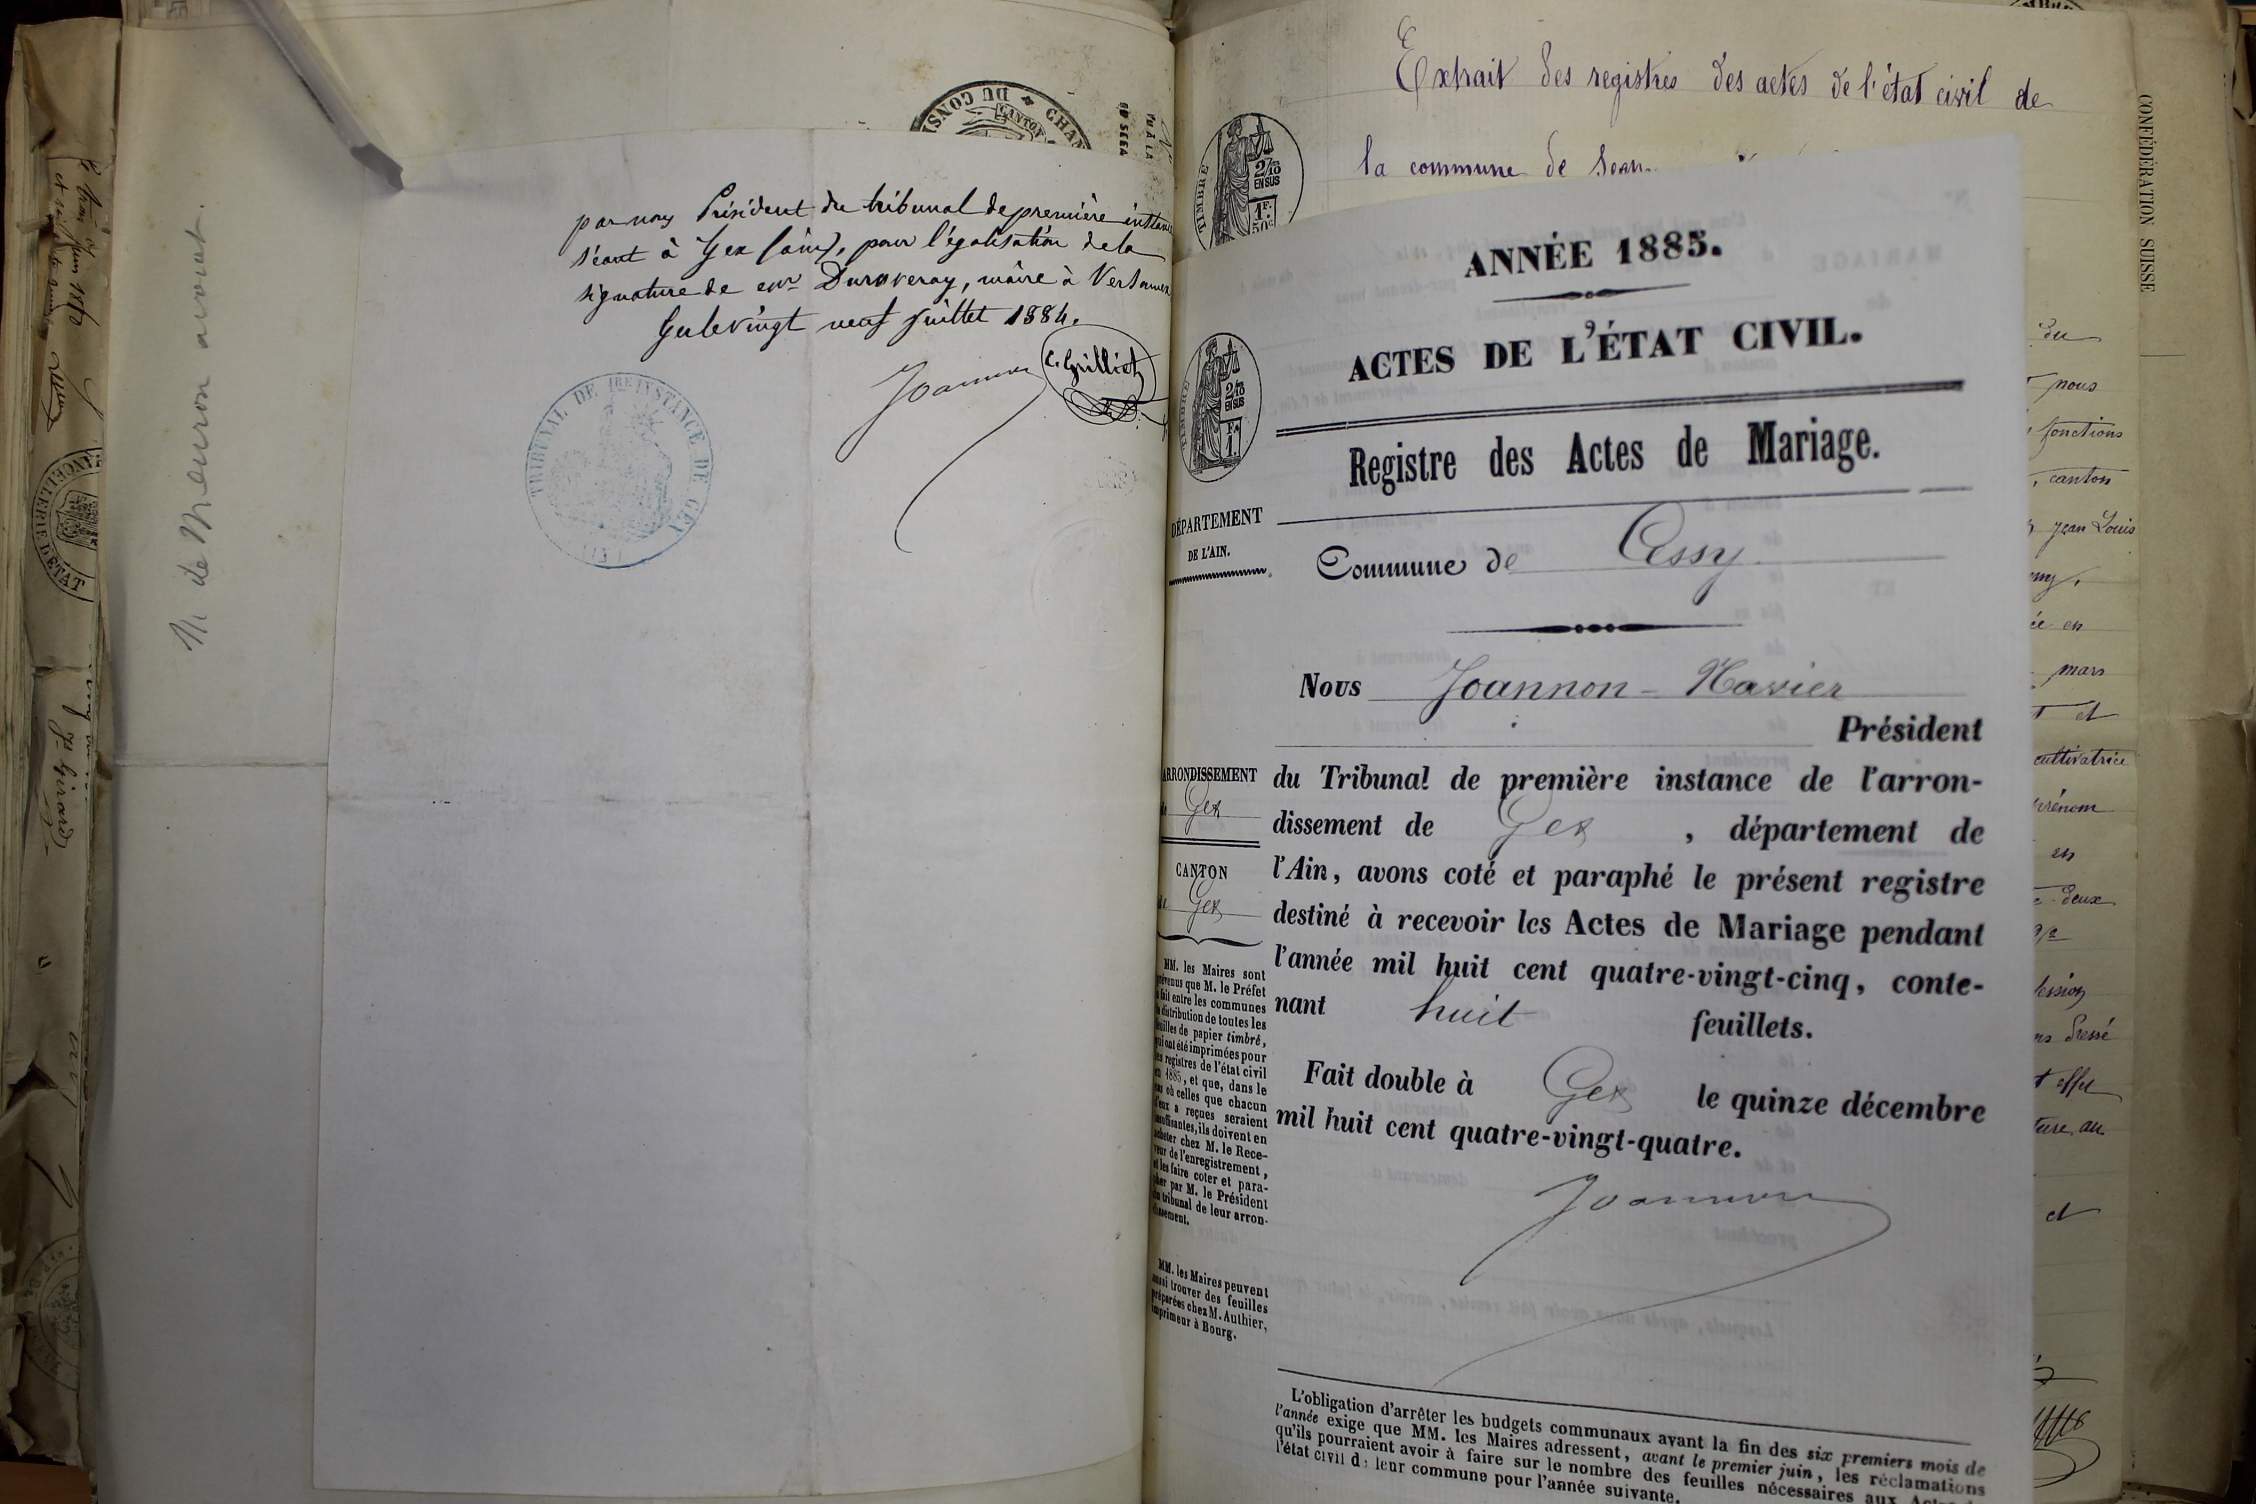 M. de Meuron avocat.
par nous Président du tribunal de première instance
séant à Gex (ain), pour légalisation de la
signature de Mr Duraveray, maire à
Gex le vingt neuf juillet 1884.
Joannon
C. Grilliet
TRIBUNAL DE 1RE INSTANCE DE GEX
(AIN)
DU CONS
CHAN
CANTON
VU À LA
CHANCELLERIE D'ÉTAT
Girard
Extrait des registres des actes de l'état civil de
la commune de
TIMBRE
2/10
EN SUS
1F.
50c.
CONFÉDÉRATION SUISSE
du
nous
fonctions
, canton
Jean Louis
en
mars
et
cultivatrice
prénom
en
deux
dressé
effet
au
et
ANNÉE 1885.
ACTES DE L'ÉTAT CIVIL.
Registre des Actes de Mariage.
TIMBRE
2/10
EN SUS
1F.
DÉPARTEMENT
DE L'AIN.
Commune de Cessy
Nous Joannon-Xavier
Président
ARRONDISSEMENT
de Gex
CANTON
de Gex
du Tribunal de première instance de l'arron-
dissement de Gex, département de
l'Ain, avons coté et paraphé le présent registre
destiné à recevoir les Actes de Mariage pendant
l'année mil huit cent quatre-vingt-cinq, conte-
nant huit feuillets.
Fait double à Gex le quinze décembre
mil huit cent quatre-vingt-quatre.
Joannon
MM. les Maires sont
prévenus que M. le Préfet
a fait entre les communes
la distribution de toutes les
feuilles de papier timbré,
qui ont été imprimées pour
les registres de l'état civil
en 1885, et que, dans le
cas où celles que chacun
d'eux a reçues seraient
insuffisantes, ils doivent en
acheter chez M. le Rece-
veur de l'enregistrement,
et les faire coter et para-
pher par M. le Président
du tribunal de leur arron-
dissement.
MM. les Maires peuvent
aussi trouver des feuilles
préparées chez M. Authier,
imprimeur à Bourg.
L'obligation d'arrêter les budgets communaux avant la fin des six premiers mois de
l'année exige que MM. les Maires adressent, avant le premier juin, les réclamations
qu'ils pourraient avoir à faire sur le nombre des feuilles nécessaires aux Actes
l'état civil de leur commune pour l'année suivante.